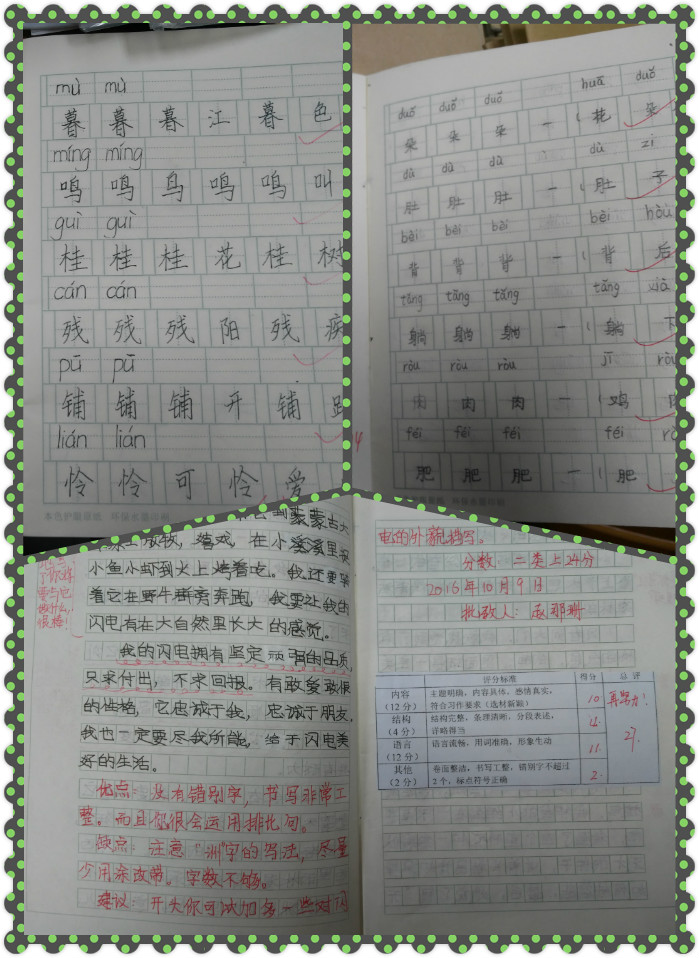 mù mù
暮 暮 暮 江 暮 色
míng míng
鸣 鸣 鸟 鸣 鸣 叫
guì guì
桂 桂 桂 花 桂 树
cán cán
残 残 残 阳 残 疾
pū pū
铺 铺 铺 开 铺
lián lián
怜 怜 可 怜 爱
duǒ duǒ duǒ huā duǒ
朵 朵 朵 一 ( 花 朵
dù dù dù dù zi
肚 肚 肚 一 ( 肚 子
bèi bèi bèi bèi hòu
背 背 背 一 ( 背 后
tǎng tǎng tǎng tǎng xià
躺 躺 躺 一 ( 躺 下
ròu ròu ròu jī ròu
肉 肉 肉 一 ( 鸡
féi féi féi féi
肥 肥 肥 一 ( 肥
到蒙蒙古大
放牧,嬉戏,在小溪溪里
小鱼小虾到火上烤着吃。我还要
着它在野牛群旁奔跑,我要让我的
闪电有在大自然里长大的感觉。
我的闪电拥有坚定顽强的品质,
只求付出,不求回报。有敢爱敢恨
的性格,它忠诚于我,忠诚于朋友,
我也一定要尽我所能,给于闪电美
好的生活。
优点:没有错别字,书写非常工
整。而且你很会运用排比句。
缺点:注意“洲”字的写法,尽量
少用涂改带。字数不够。
建议:开头你可试加多一些对闪
电的外貌描写。
分数:二类上24分
2016年10月9日
批改人:
评分标准 得分 总评
内容(12分) 主题明确,内容具体,感情真实,符合习作要求(选材新颖) 10 再努力!
结构(4分) 结构完整,条理清晰,分段表述,详略得当
语言(12分) 语言流畅,用词准确,形象生动 11
其他(2分) 卷面整洁,书写工整,错别字不超过2个,标点符号正确 2